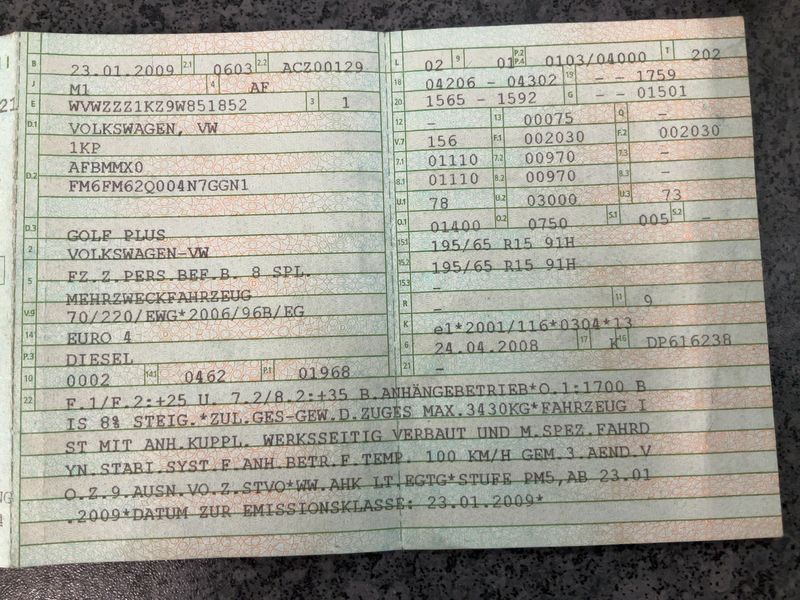 B 23.01.2009 2.1 0603 2.2 ACZ00129
J M1 4 AF
E WVWZZZ1KZ9W851852 3 1
D.1 VOLKSWAGEN, VW
1KP
D.2 AFBMMX0
FM6FM62Q004N7GGN1
D.3 GOLF PLUS
2 VOLKSWAGEN-VW
5 FZ.Z.PERS.BEF.B. 8 SPL.
MEHRZWECKFAHRZEUG
V.9 70/220/EWG*2006/96B/EG
14 EURO 4
P.3 DIESEL
10 0002 14.1 0462 P.1 01968
L 02 9 01 P.2 P.4 0103/04000 T 202
18 04206 - 04302 19 - - 1759
20 1565 - 1592 G - - 01501
12 - 13 00075 Q -
V.7 156 F.1 002030 F.2 002030
7.1 01110 7.2 00970 7.3 -
8.1 01110 8.2 00970 8.3 -
U.1 78 U.2 03000 U.3 73
O.1 01400 O.2 0750 S.1 005 S.2 -
15.1 195/65 R15 91H
15.2 195/65 R15 91H
15.3 -
R - 11 9
K e1*2001/116*0304*13
6 24.04.2008 17 K 16 DP616238
21 -
22 F.1/F.2:+25 U. 7.2/8.2:+35 B.ANHÄNGEBETRIEB*O.1:1700 B
IS 8% STEIG.*ZUL.GES-GEW.D.ZUGES MAX.3430KG*FAHRZEUG I
ST MIT ANH.KUPPL. WERKSSEITIG VERBAUT UND M.SPEZ.FAHRD
YN.STABI.SYST.F.ANH.BETR.F.TEMP. 100 KM/H GEM.3.AEND.V
O.Z.9.AUSN.VO.Z.STVO*WW.AHK LT.EGTG*STUFE PM5,AB 23.01
.2009*DATUM ZUR EMISSIONSKLASSE: 23.01.2009*